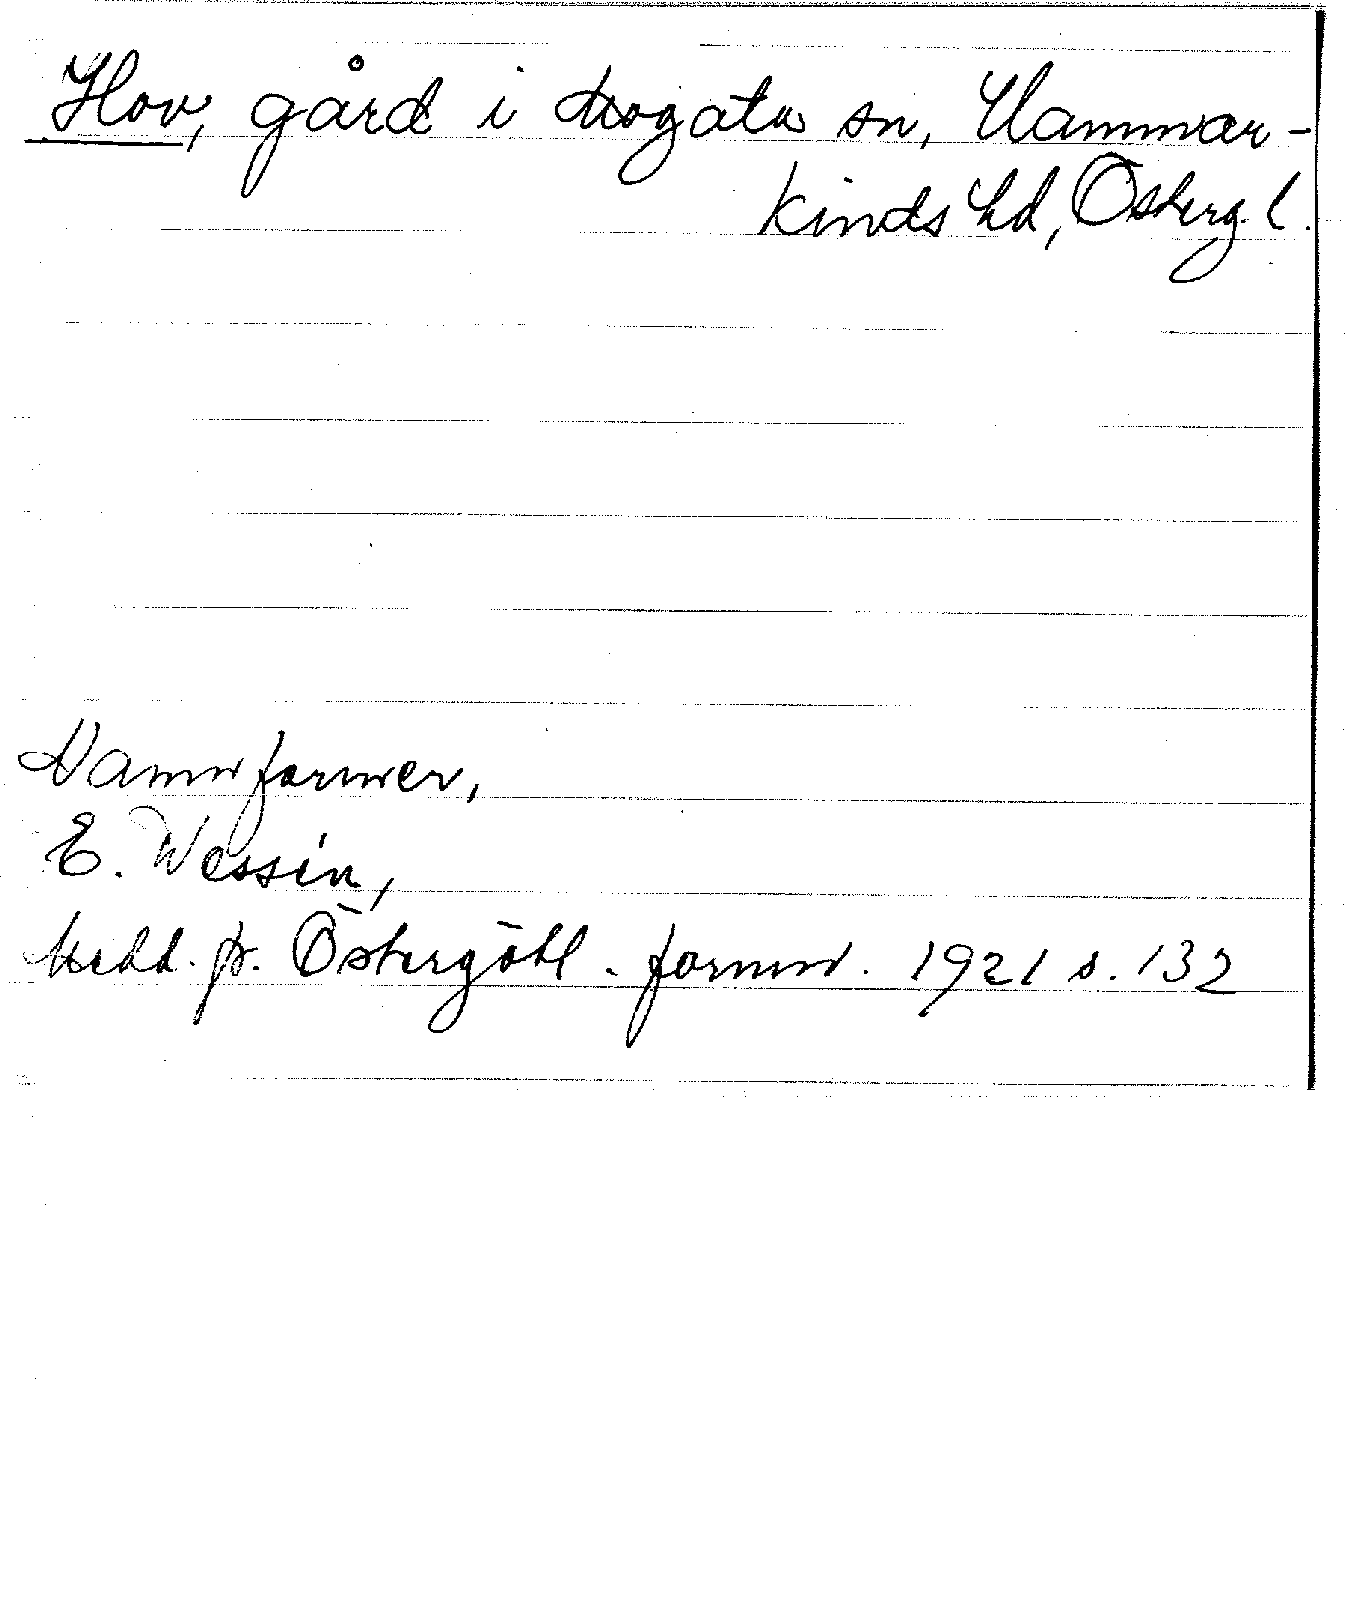 Hov, gård i Mogata sn, Hammar-
kinds hd, Östergl.
Namnformer,
E. Wessén,
Medd. fr. Östergötl. fornm. 1921 s. 132